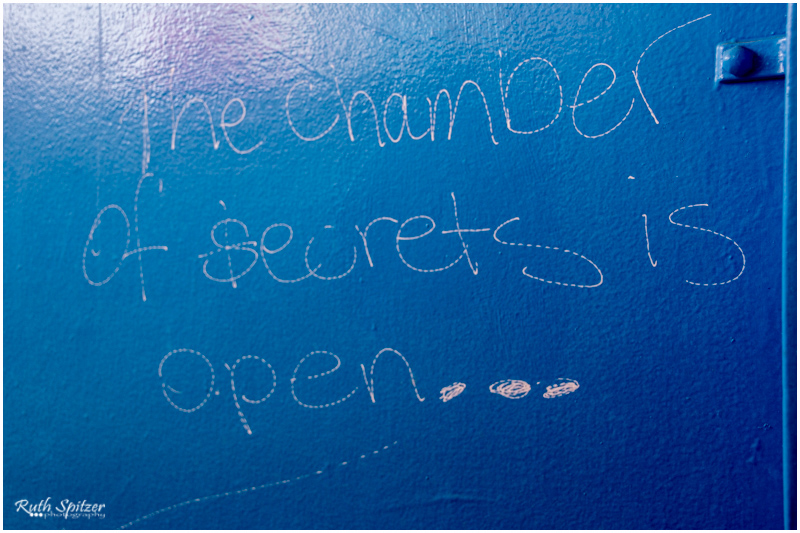 The chamber
of secrets is
open...
Ruth Spitzer
photography